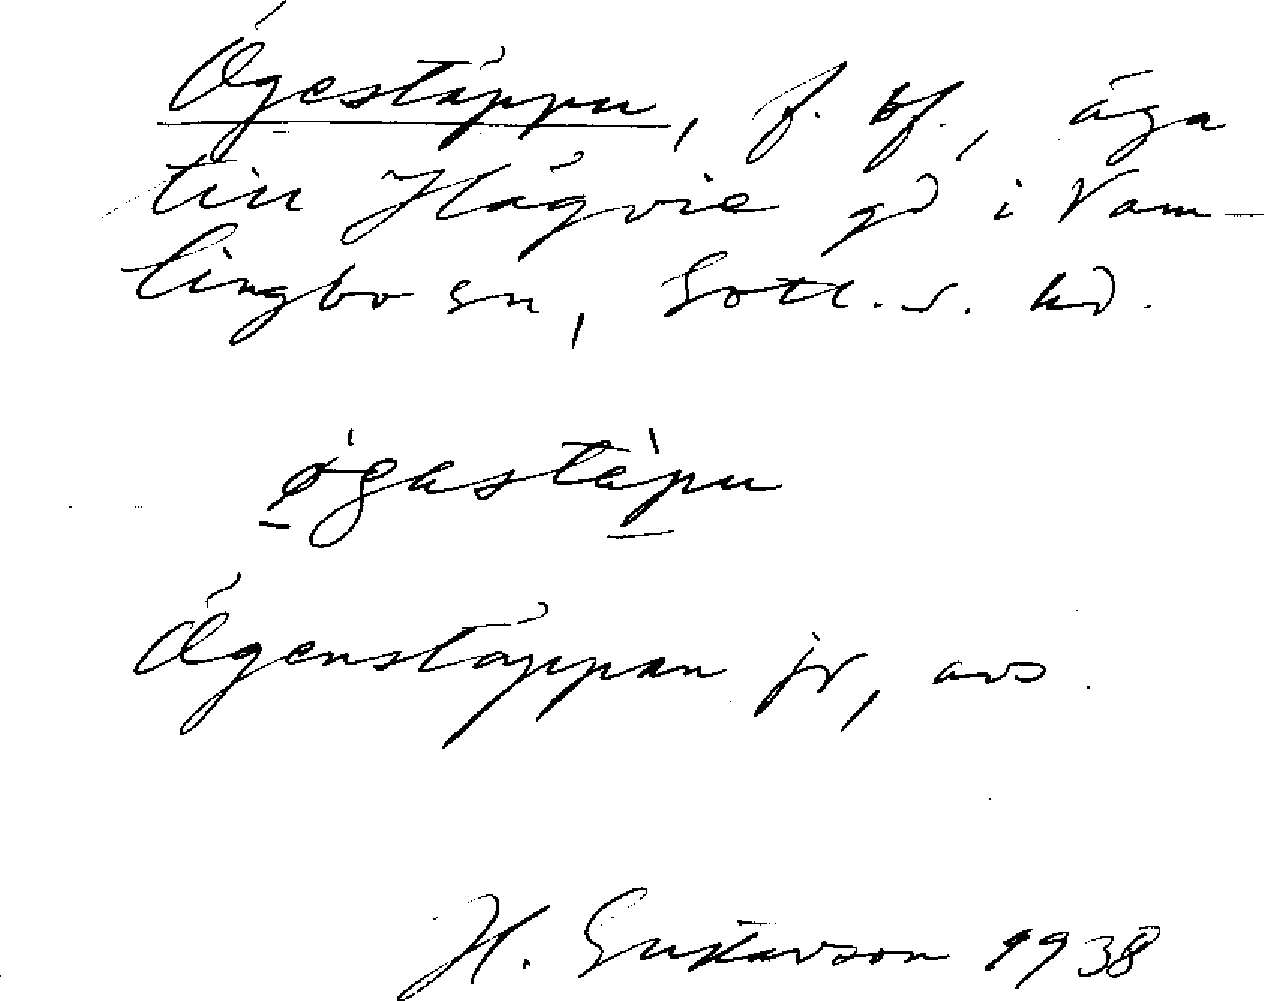 Ögestäppu, f. bf., äga
till Hägvie gd i Vam-
lingbo sn, Gotl. s. hd.
øgastäpu
Ögenstäppan jr, avs.
H. Gustavson 1938